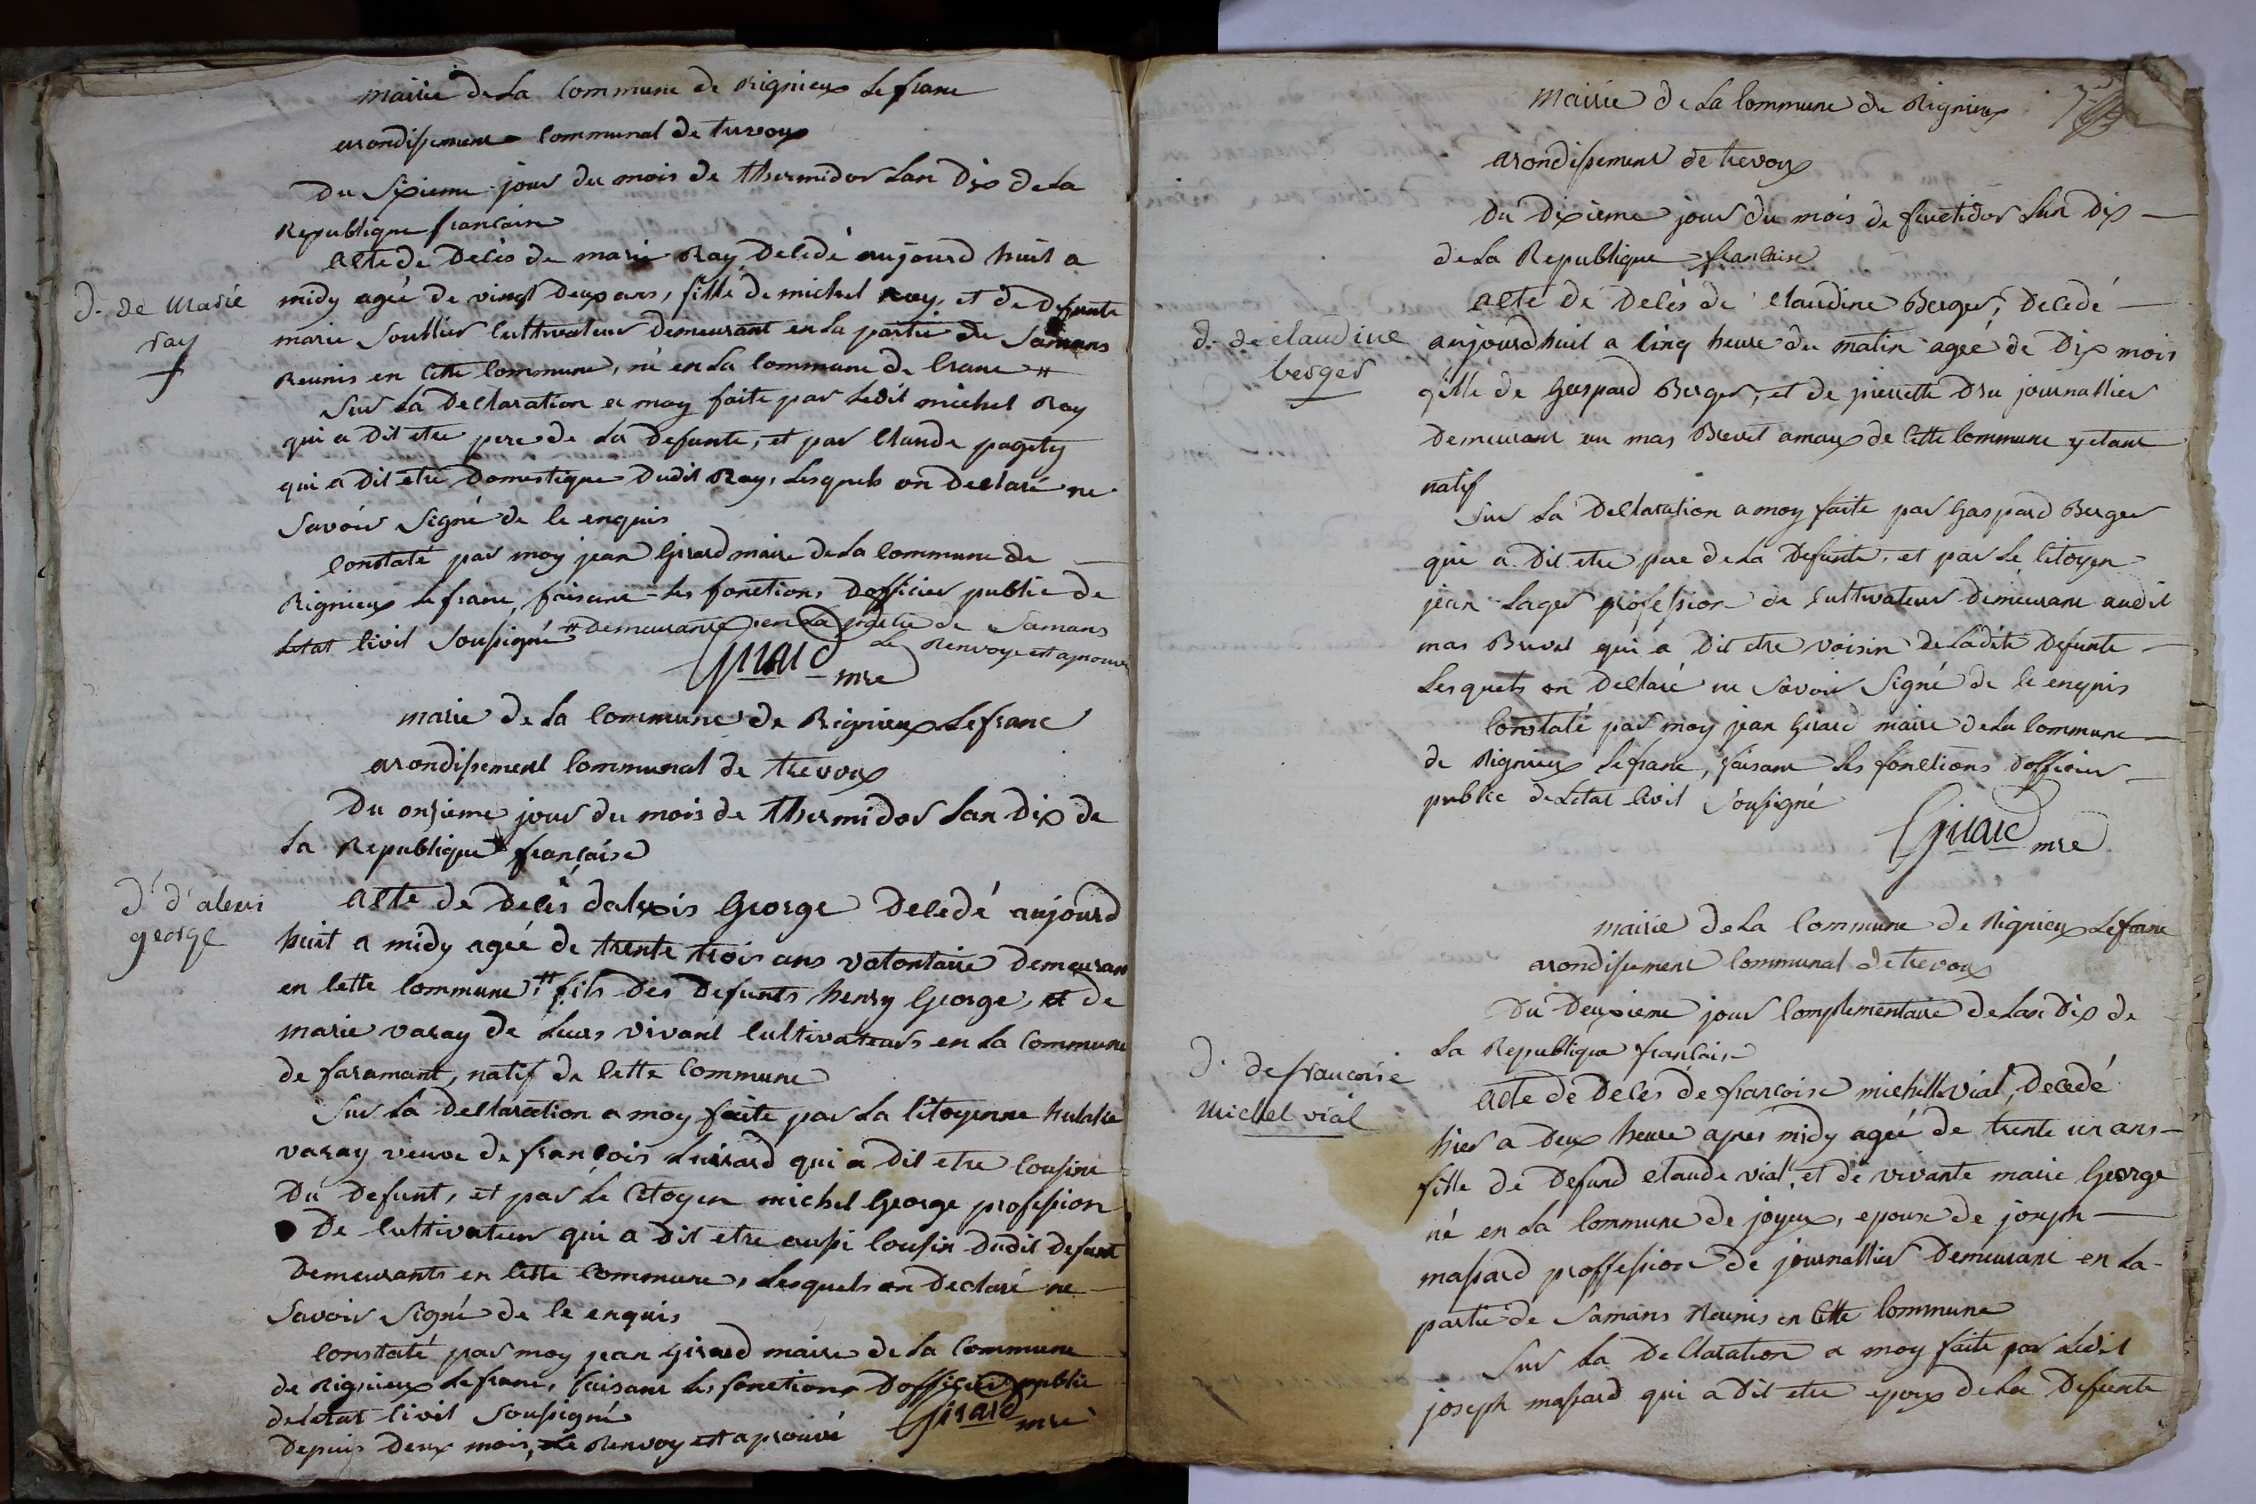 mairie de La Commune de Rignieux Le franc
arondissement Communal de trevoux
Du Sixieme jour du mois de thermidor Lan Dix de La
Republique francaise
acte de Decès de marie Ray Decedé aujourd huit a
D. de Marie
ray
midy ageé de vingt Deux ans, fille de michel Ray, et de Defunte
marie Soullier Cultivateur Demeurant en La partie de Samans
Reunis en Cette Commune, né en La Commune de Crane #
Sur La Declaration a moy faite par Ledit michel Ray
qui a Dit etre pere de La Defunte, et par Claude pagety
qui a Dit etre Domestique Dudit Ray, Lesquels on Declaré ne
Savoir Signé de Ce enquis
Constaté par moy jean Girard maire de La Commune de
Rignieux Le franc, faisant Les fonctions Dofficier public de
Letat Civil Soussigné # Demeurante en La partie de Samans
Le Renvoye est aprouvé
Girard mre
marie de La Commune de Rignieux Le franc
arondissement Communal de trevoux
Du onzieme jour du mois de thermidor Lan Dix de
La Republique francaise
D. d'alexis
george
acte de Decès dalexis George Decedé aujourd
huit a midy ageé de trente trois ans volontaire Demeurant
en Cette Commune # fils Des Defunts henry George, et de
marie varay de Leurs vivant Cultivateurs en La Commune
de faramant, natif de Cette Commune
Sur La Declaration a moy faite par La Citoyenne
varay veuve de francois Luirard qui a Dit etre Cousine
Du Defunt, et par Le Citoyen michel George profession
De Cultivateur qui a Dit etre aussi Cousin Dudit Defunt
Demeurants en Cette Commune, Lesquels on Declaré ne
Savoir Signé de Ce enquis
Constaté par moy jean Girard maire de La Commune
de Rignieux Le franc, faisant Les fonctions Dofficier public
de Letat Civil Soussigné
Girard mre
Depuis Deux mois, Le Renvoy est aprouvé
mairie de La Commune de Rignieux
arondissement de trevoux
Du Dixieme jour du mois de fructidor Lan Dix
de La Republique francaise
D. de claudine
berger
acte de Decès de Claudine Berger, Decedé
aujourdhuit a Cinq heure du matin ageé de Dix mois
fille de Gaspard Berger, et de pierrette Dru journallier
Demeurant au mas Brevet amaux de Cette Commune y etant
natif
Sur La Declaration a moy faite par Gaspard Berger
qui a Dit etre pere de La Defunte, et par Le Citoyen
jean Lager profession de Cultivateur Demeurant audit
mas Brevet qui a Dit etre voisin de Ladite Defunte
Lesquels on Declaré ne Savoir Signé de Ce enquis
Constaté par moy jean Girard maire de La Commune
de Rignieux Le franc, faisant Les fonctions Dofficier
public de Letat Civil Sousigné
Girard mre
mairie de La Commune de Rignieux Le franc
arondissement Communal de trevoux
Du Deuxieme jour Complementaire de Lan Dix de
La Republique francaise
D. de francoise
Michel vial
acte de Decès de francoise michelle vial, Decedé
hier a Deux heure apres midy ageé de trente un ans
fille de Defund Claude vial, et de vivante marie George
né en La Commune de joyeux, epouse de joseph
massard proffession de journallier Demeurant en La
partie de Samans Reunis en Cette Commune
Sur La Declaration a moy faite par Ledit
joseph massard qui a Dit etre epoux de La Defunte